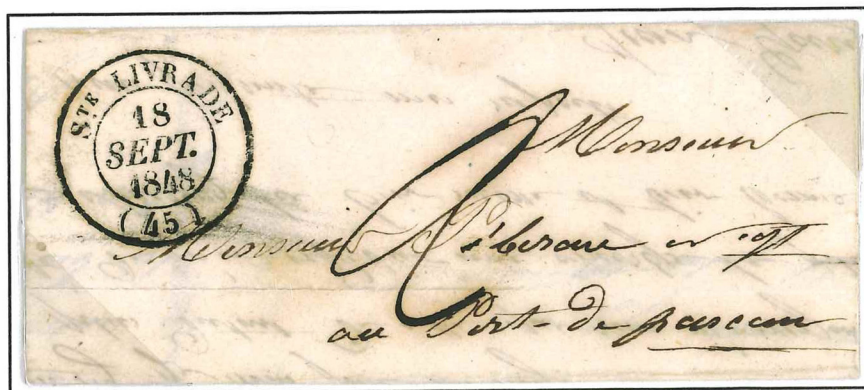 STE LIVRADE
18
SEPT.
1848
(45)
2
Monsieur
Monsieur
au Port-de-pascau